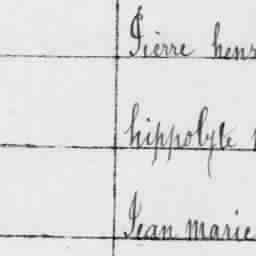 Pierre hens
hippolyte
Jean marie